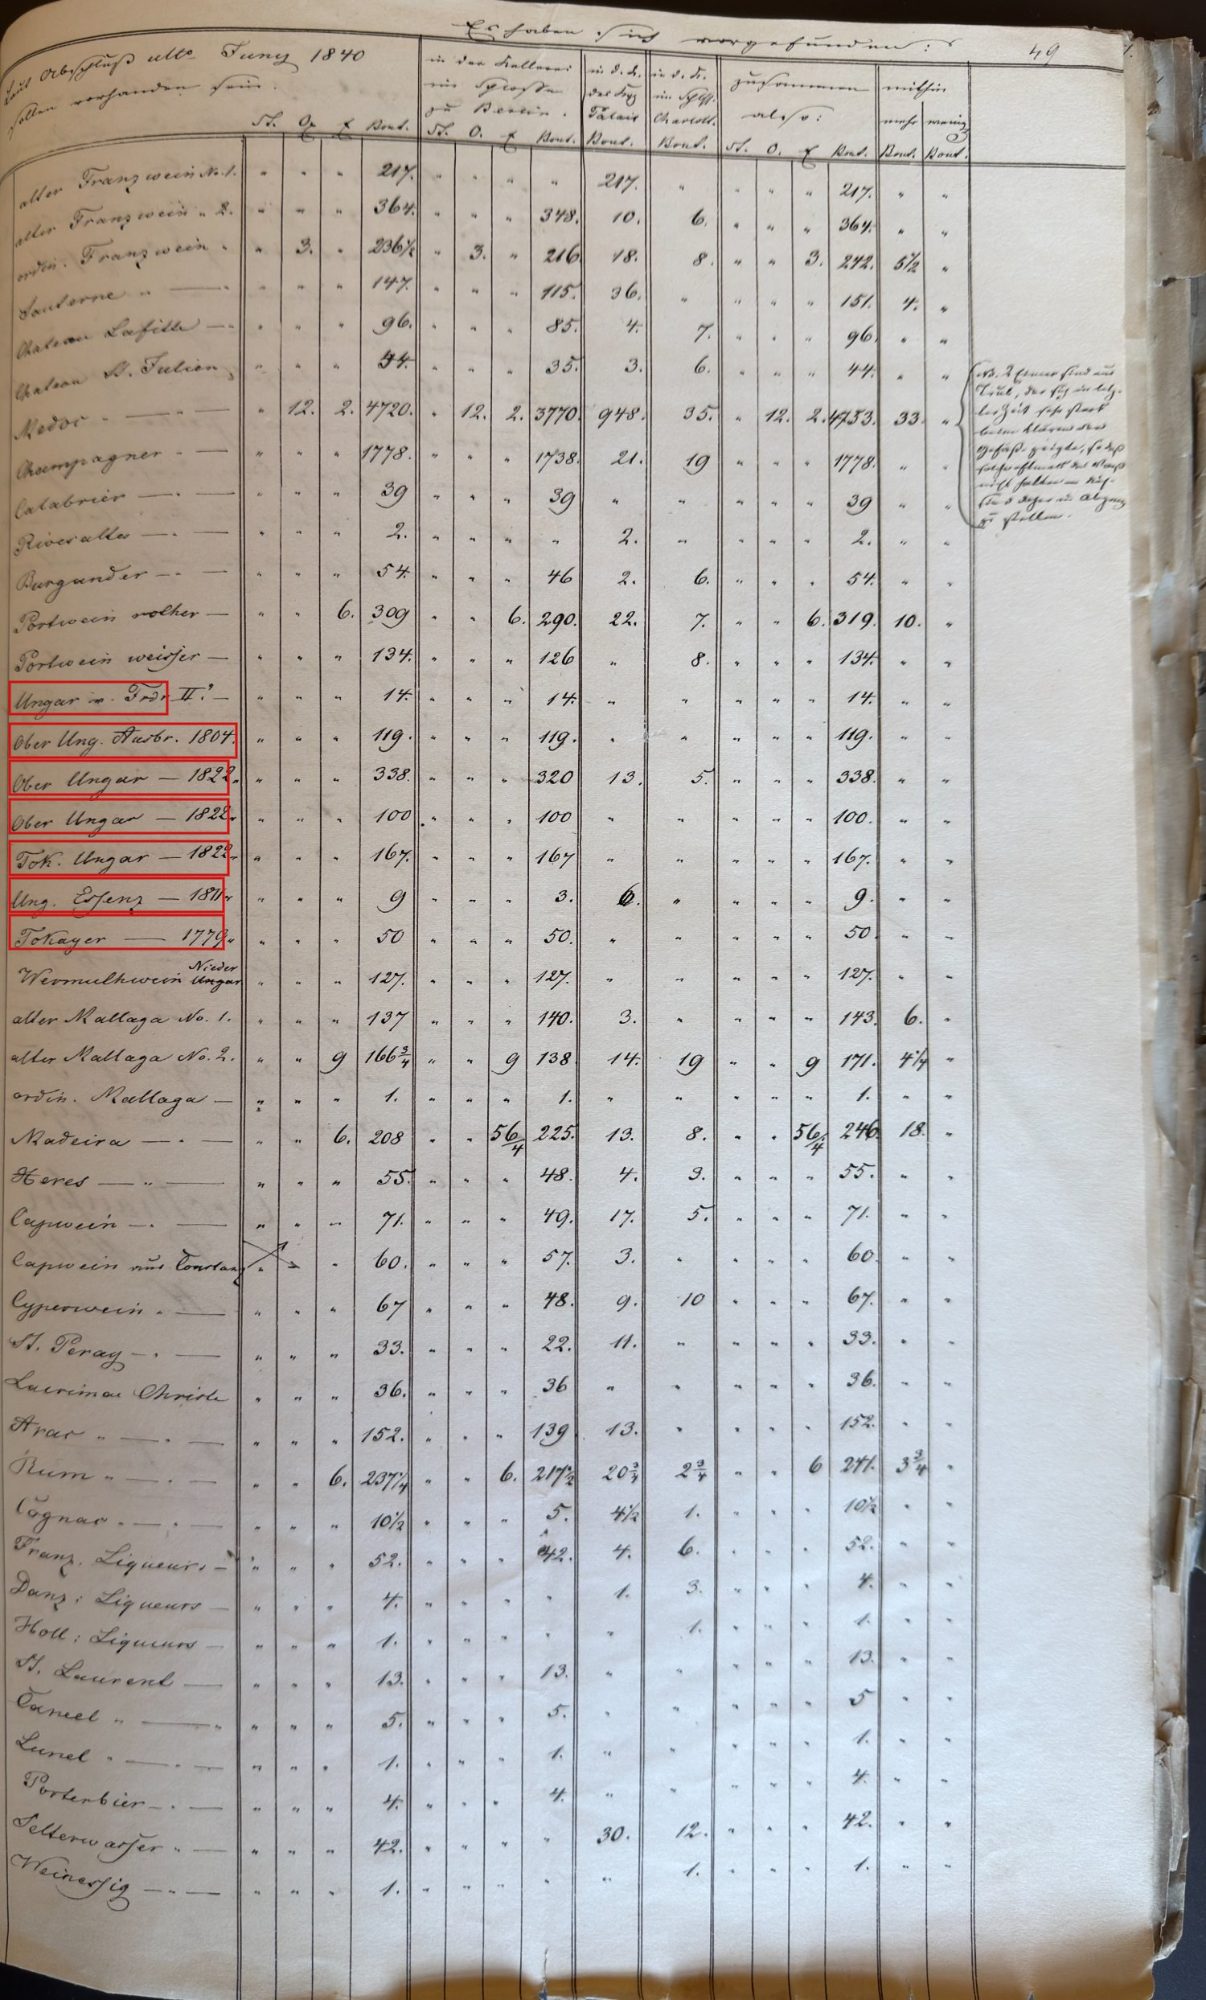 Es haben sich vorgefunden:
49
Laut Abschluß ult. Juny 1840
sollen vorhanden sein.
in der Kellerei
im Schlosse
zu Berlin.
in d. K.
des Kgs
Palais
in d. K.
im Schlß.
Charlott.
zusammen
also:
mithin
mehr wenig
St. O. Bout. St. O. Bout. Bout. Bout. St. O. Bout. Bout. Bout.
alter Franzwein No. 1. " " " 217. " " " " 217. " " " " 217. " "
alter Franzwein " 2. " " " 364. " " " 348. 10. 6. " " " 364. " "
ordin. Franzwein " " 3. " 236½ " 3. " 216 18. 8. " " 3. 242. 5½ "
Sauterne " — " " " 147. " " " 115. 36. " " " " 151. 4. "
Chateau Lafitte — " " " 96. " " " 85. 4. 7. " " " 96. " "
Chateau St. Julien " " " 44. " " " 35. 3. 6. " " " 44. " "
Medoc — " — " 12. 2. 4720. " 12. 2. 3770. 948. 35. " 12. 2. 4753. 33. "
Champagner " — " " " 1778. " " " 1738. 21. 19 " " " 1778. " "
Calabrier — " — " " " 39 " " " 39 " " " " " 39 " "
Rivesaltes — " " " " 2. " " " " 2. " " " " 2. " "
Burgunder — " — " " " 54. " " " 46 2. 6. " " " 54. " "
Portwein rother — " " 6. 309 " " 6. 290. 22. 7. " " 6. 319. 10. "
Portwein weisser — " " " 134. " " " 126 " 8. " " " 134. " "
Ungar v. Frdr II. — " " " 14. " " " 14. " " " " " 14. " "
Ober Ung. Ausbr. 1804. " " " 119. " " " 119. " " " " " 119. " "
Ober Ungar — 1822. " " " 338. " " " 320 13. 5. " " " 338. " "
Ober Ungar — 1822. " " " 100 " " " 100 " " " " " 100. " "
Tok. Ungar — 1822. " " " 167. " " " 167 " " " " " 167. " "
Ung. Essenz — 1811 " " " 9 " " " 3. 6. " " " " 9. " "
Tokayer — 1779 " " " 50 " " " 50. " " " " " 50 " "
Wermuthwein Nieder Ungar " " " 127. " " " 127. " " " " " 127. " "
alter Mallaga No. 1. " " " 137 " " " 140. 3. " " " " 143. 6. "
alter Mallaga No. 2. " " 9 166¾ " " 9 138. 14. 19 " " 9 171. 4¼ "
ordin. Mallaga — " " " 1. " " " 1. " " " " " 1. " "
Madeira — " — " " 6. 208 " " 56/4 225. 13. 8. " " 56/4 246 18. "
Xeres — " — " " " 55. " " " 48. 4. 3. " " " 55. " "
Capwein — " — " " " 71. " " " 49. 17. 5. " " " 71. " "
Capwein aus Constanz " " 60. " " " 57. 3. " " " " 60. " "
Cyperwein " — " " " 67 " " " 48. 9. 10 " " " 67. " "
St. Peray — " — " " " 33. " " " 22. 11. " " " " 33. " "
Lacrimae Christi " " " 36. " " " 36 " " " " " 36. " "
Arac " — " — " " " 152. " " " 139 13. " " " " 152. " "
Rum " — " — " " 6. 237¼ " " 6. 217½ 20¾ 2¾ " " 6 241. 3¾ "
Cognac " — " — " " " 10½ " " " 5. 4½ 1. " " " 10½ " "
Franz. Liqueurs — " " " 52. " " " 42. 4. 6. " " " 52. " "
Danz: Liqueurs — " " " 4. " " " " 1. 3. " " " 4. " "
Holl: Liqueurs — " " " 1. " " " " " 1. " " " 1. " "
St. Laurent — " " " 13. " " " 13. " " " " " 13. " "
Caneel " — " " " 5. " " " 5. " " " " " 5 " "
Lunel " — " — " " " 1. " " " 1. " " " " " 1. " "
Porterbier — " — " " " 4. " " " 4. " " " " " 4. " "
Selterwasser " — " " " 42. " " " " 30. 12. " " " 42. " "
Weinessig — " — " " " 1. " " " " " 1. " " " 1. " "